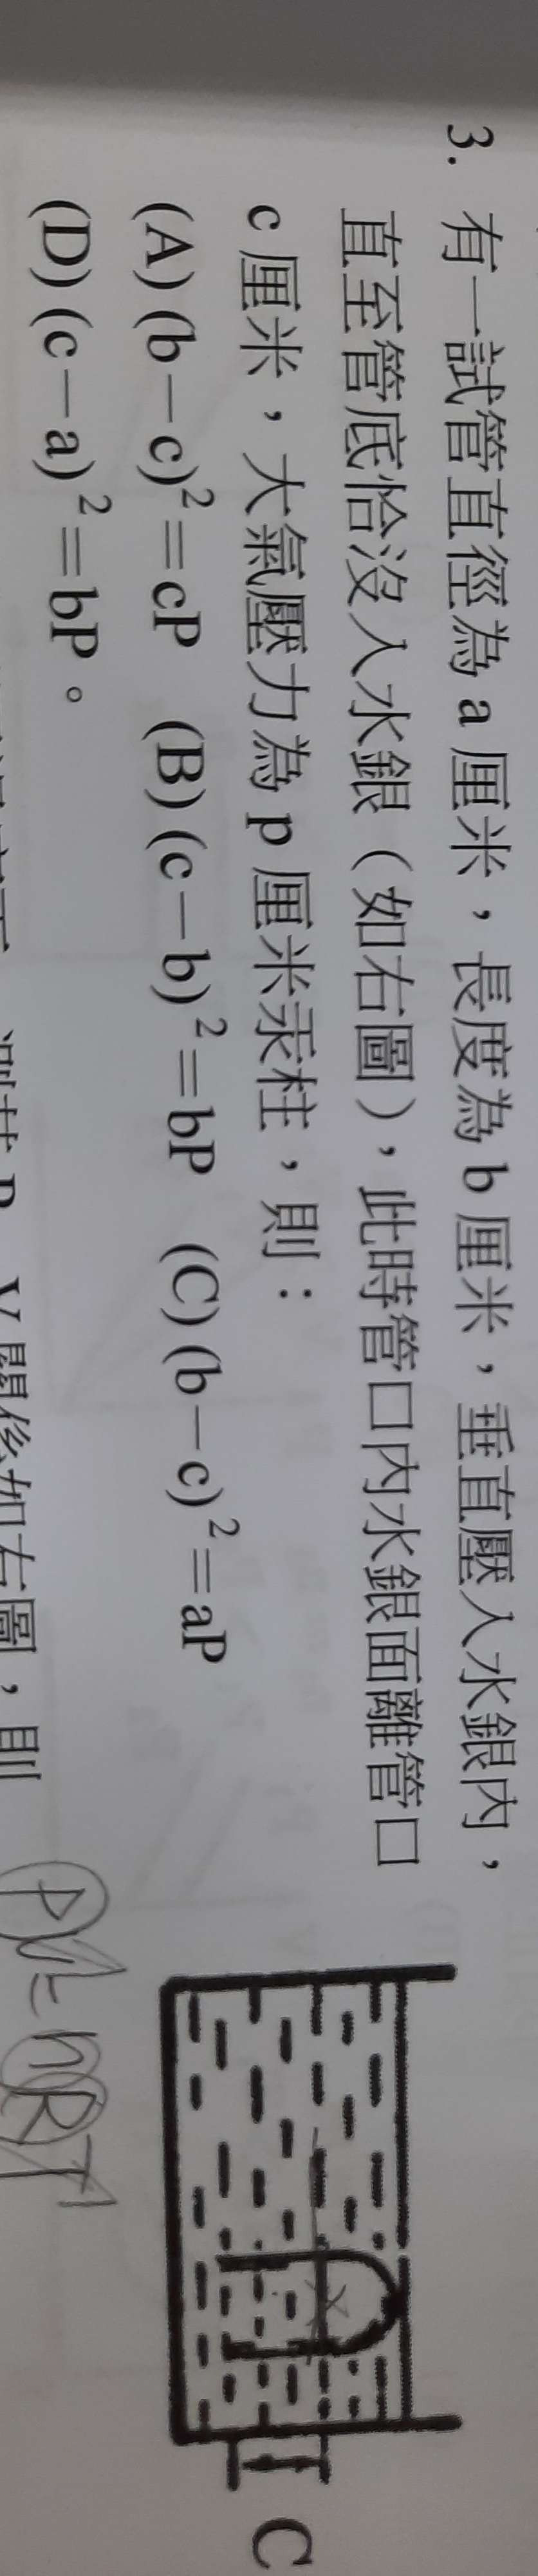 3. 有一試管直徑為 a 厘米，長度為 b 厘米，垂直壓入水銀內，
直至管底恰沒入水銀（如右圖），此時管口內水銀面離管口
c 厘米，大氣壓力為 p 厘米汞柱，則：
(A) (b－c)²＝cP (B) (c－b)²＝bP (C) (b－c)²＝aP
(D) (c－a)²＝bP。
C
關係如右圖，則
PV=nRT